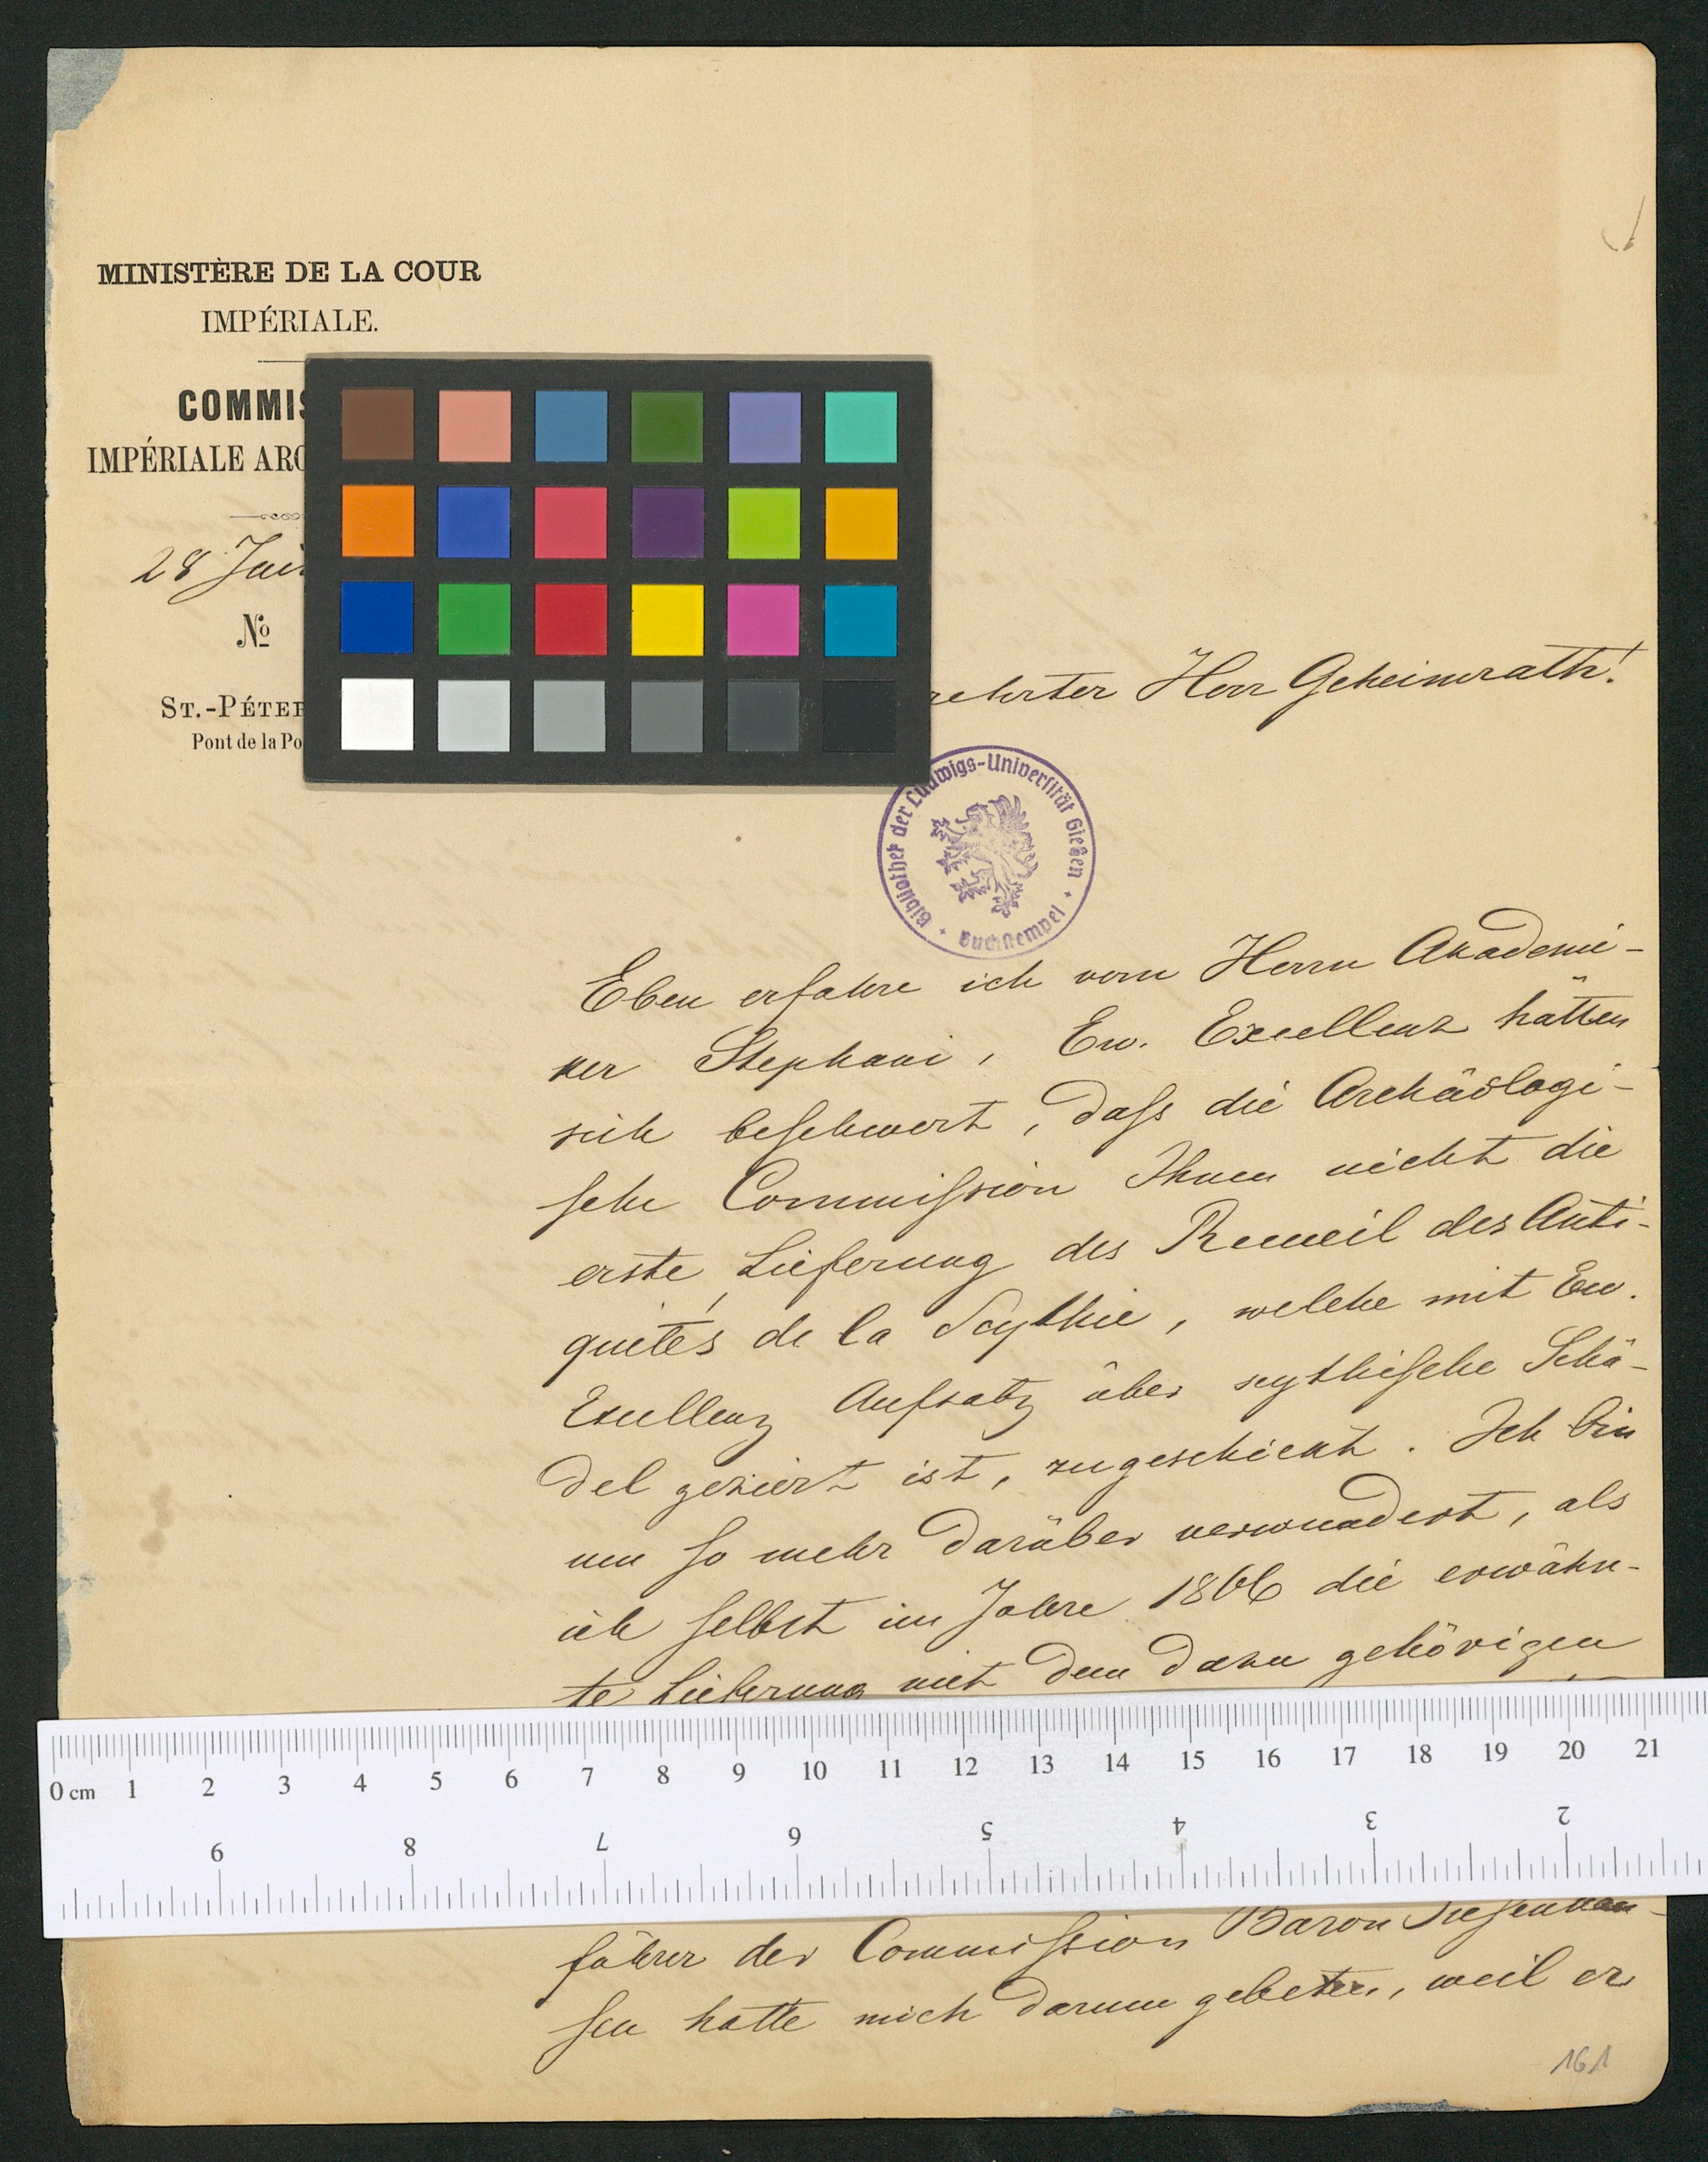 MINISTÈRE DE LA COUR
IMPÉRIALE.
COMMIS
IMPÉRIALE ARC
28 Jui
№
ST.-PÉTER
Pont de la Po
rehrter Herr Geheimrath!
Bibliothek der Ludwigs-Universität Gießen
Buchstempel
Eben erfahre ich vom Herrn Akademi-
ker Stephani, Ew. Excellenz hätten
sich beschwert, daſs die Archäologi-
sche Commiſsion Ihnen nicht die
erste Lieferung des Recueil des Anti-
quités de la Scythie, welche mit Ew.
Excellenz Aufsatz über scythische Schä-
del geziert ist, zugeschickt. Ich bin
um so mehr darüber verwundert, als
ich selbst im Jahre 1866 die erwähn-
te Lieferung mit dem dazu gehörigen
0 cm 1 2 3 4 5 6 7 8 9 10 11 12 13 14 15 16 17 18 19 20 21
9 8 7 6 5 4 3 2
führer der Commiſsion Baron Tiesenhau-
sen hatte mich darum gebeten, weil er
161